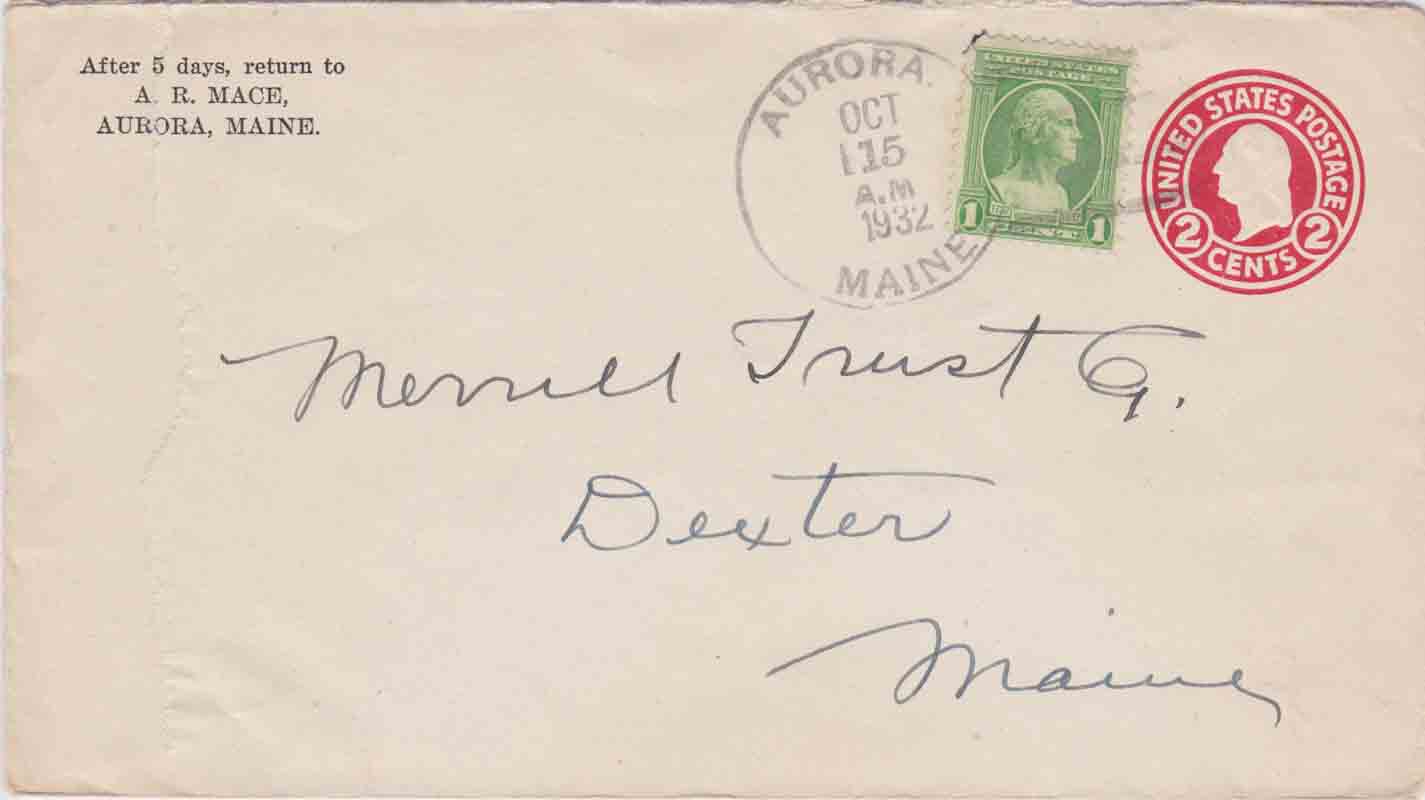 After 5 days, return to
A. R. MACE,
AURORA, MAINE.
AURORA.
OCT
15
A.M
1932
MAINE
UNITED STATES
POSTAGE
1 1
UNITED STATES POSTAGE
2 CENTS 2
Merrill Trust Co.
Dexter
Maine